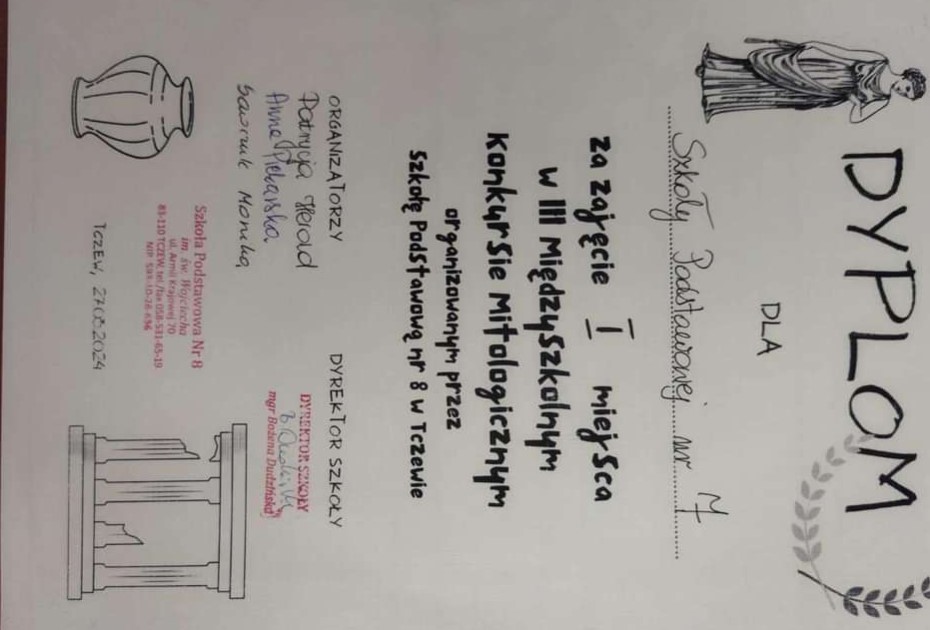 DYPLOM
DLA
Szkoły Podstawowej nr 7
za zajęcie I miejsca
w III Międzyszkolnym
Konkursie Mitologicznym
organizowanym przez
Szkołę Podstawową nr 8 w Tczewie
ORGANIZATORZY
Patrycja Herold
Anna Piekarska
Sawczuk Monika
DYREKTOR SZKOŁY
DYREKTOR SZKOŁY
mgr Bożena Dudzińska
Szkoła Podstawowa Nr 8
im. św. Wojciecha
ul. Armii Krajowej 70
83-110 TCZEW, tel./fax 058-531-65-19
NIP 593-10-26-696
TCZEW, 2024